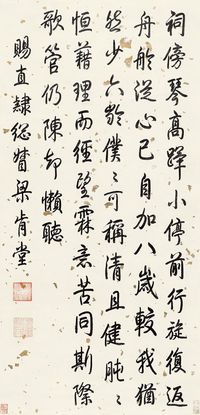 祠傍琴高蹕小停前行旋復返
舟舲從心已自加八歲較我猶
然少六齡僕〻可稱清且健肫〻
恒藉理而經望霖意苦同斯際
歌管仍陳卻懶聽
賜直隸總督梁肯堂